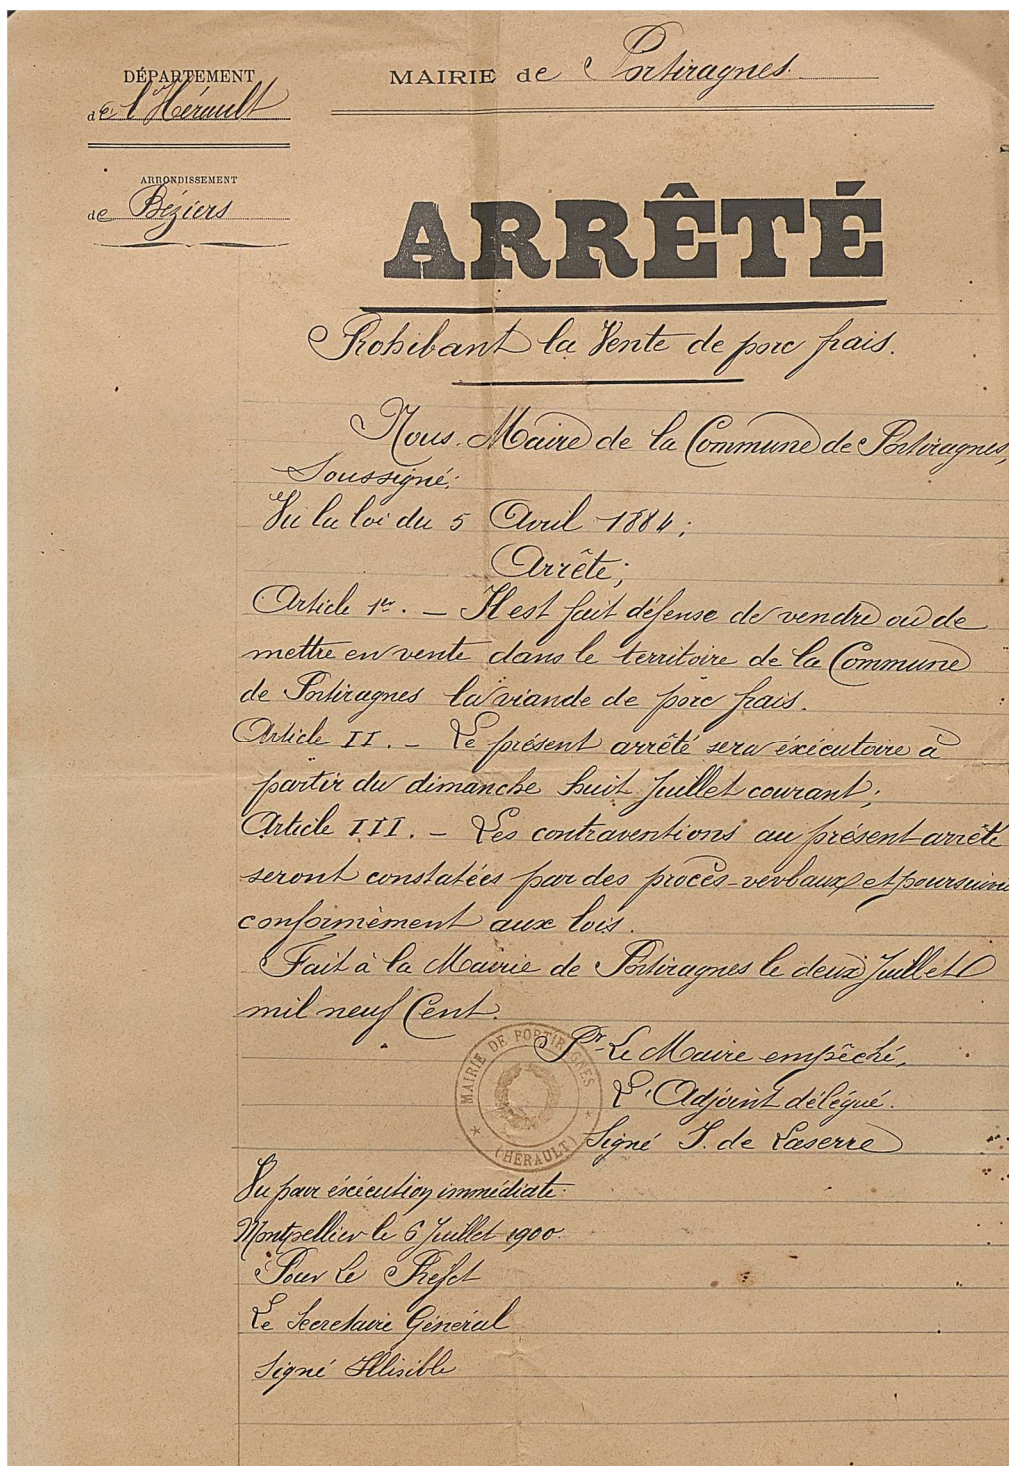 DÉPARTEMENT
de l'Hérault
ARRONDISSEMENT
de Béziers
MAIRIE de Portiragnes.
ARRÊTÉ
Prohibant la Vente de porc frais.
Nous. Maire de la Commune de Portiragnes,
Soussigné;
Vu la loi du 5 Avril 1884;
Arrête;
Article 1er. — Il est fait défense de vendre ou de
mettre en vente dans le territoire de la Commune
de Portiragnes la viande de porc frais.
Article II. — Le présent arrêté sera éxécutoire à
partir du dimanche huit Juillet courant;
Article III. — Les contraventions au présent arrêté
seront constatées par des procès-verbaux et poursuivi
conformèment aux lois.
Fait à la Mairie de Portiragnes le deux Juillet
mil neuf Cent.
Pr. Le Maire empêché,
L'Adjoint délégué.
Signé J. de Laserre
MAIRIE DE PORTIRAGNES
(HÉRAULT)
Vu pour éxécution immédiate.
Montpellier le 6 Juillet 1900.
Pour Le Préfet
Le Secretaire Général
Signé Illisible